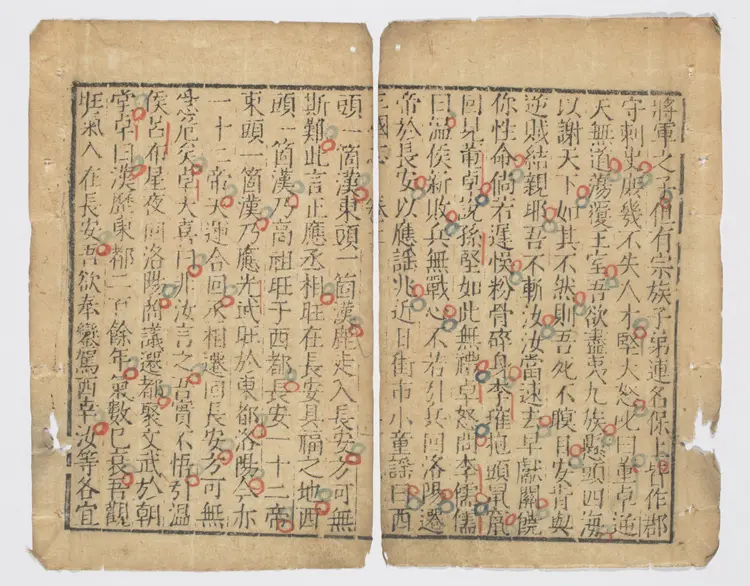 將軍之子但有宗族子弟連名保上皆作郡
守刺史庶幾不失人才堅大怒叱曰董卓逆
天無道蕩覆王室吾欲盡夷九族懸頭四海
以謝天下如其不然則吾死不瞑目安肯與
逆賊結親耶吾不斬汝汝當速去早獻關饒
你性命倘若遲悞粉骨碎身李傕抱頭鼠竄
回見董卓說孫堅如此無禮卓怒問李儒儒
曰溫侯新敗兵無戰心不若引兵回洛陽遷
帝於長安以應謡兆近日街市小童謡曰西
三國志 卷
頭一箇漢東頭一箇漢鹿走入長安方可無
斯難此言正應丞相旺在長安具福之地西
頭一箇漢乃高祖旺于西都長安一十二帝
東頭一箇漢乃應光武旺於東都洛陽今亦
一十二帝天運合回丞相遷回長安方可無
危矣卓大喜曰非汝言之吾實不悟引溫
侯呂布星夜回洛陽商議遷都聚文武於朝
堂卓曰漢歷東都二百餘年氣數已衰吾觀
旺氣入在長安吾欲奉鑾駕西幸汝等各宜